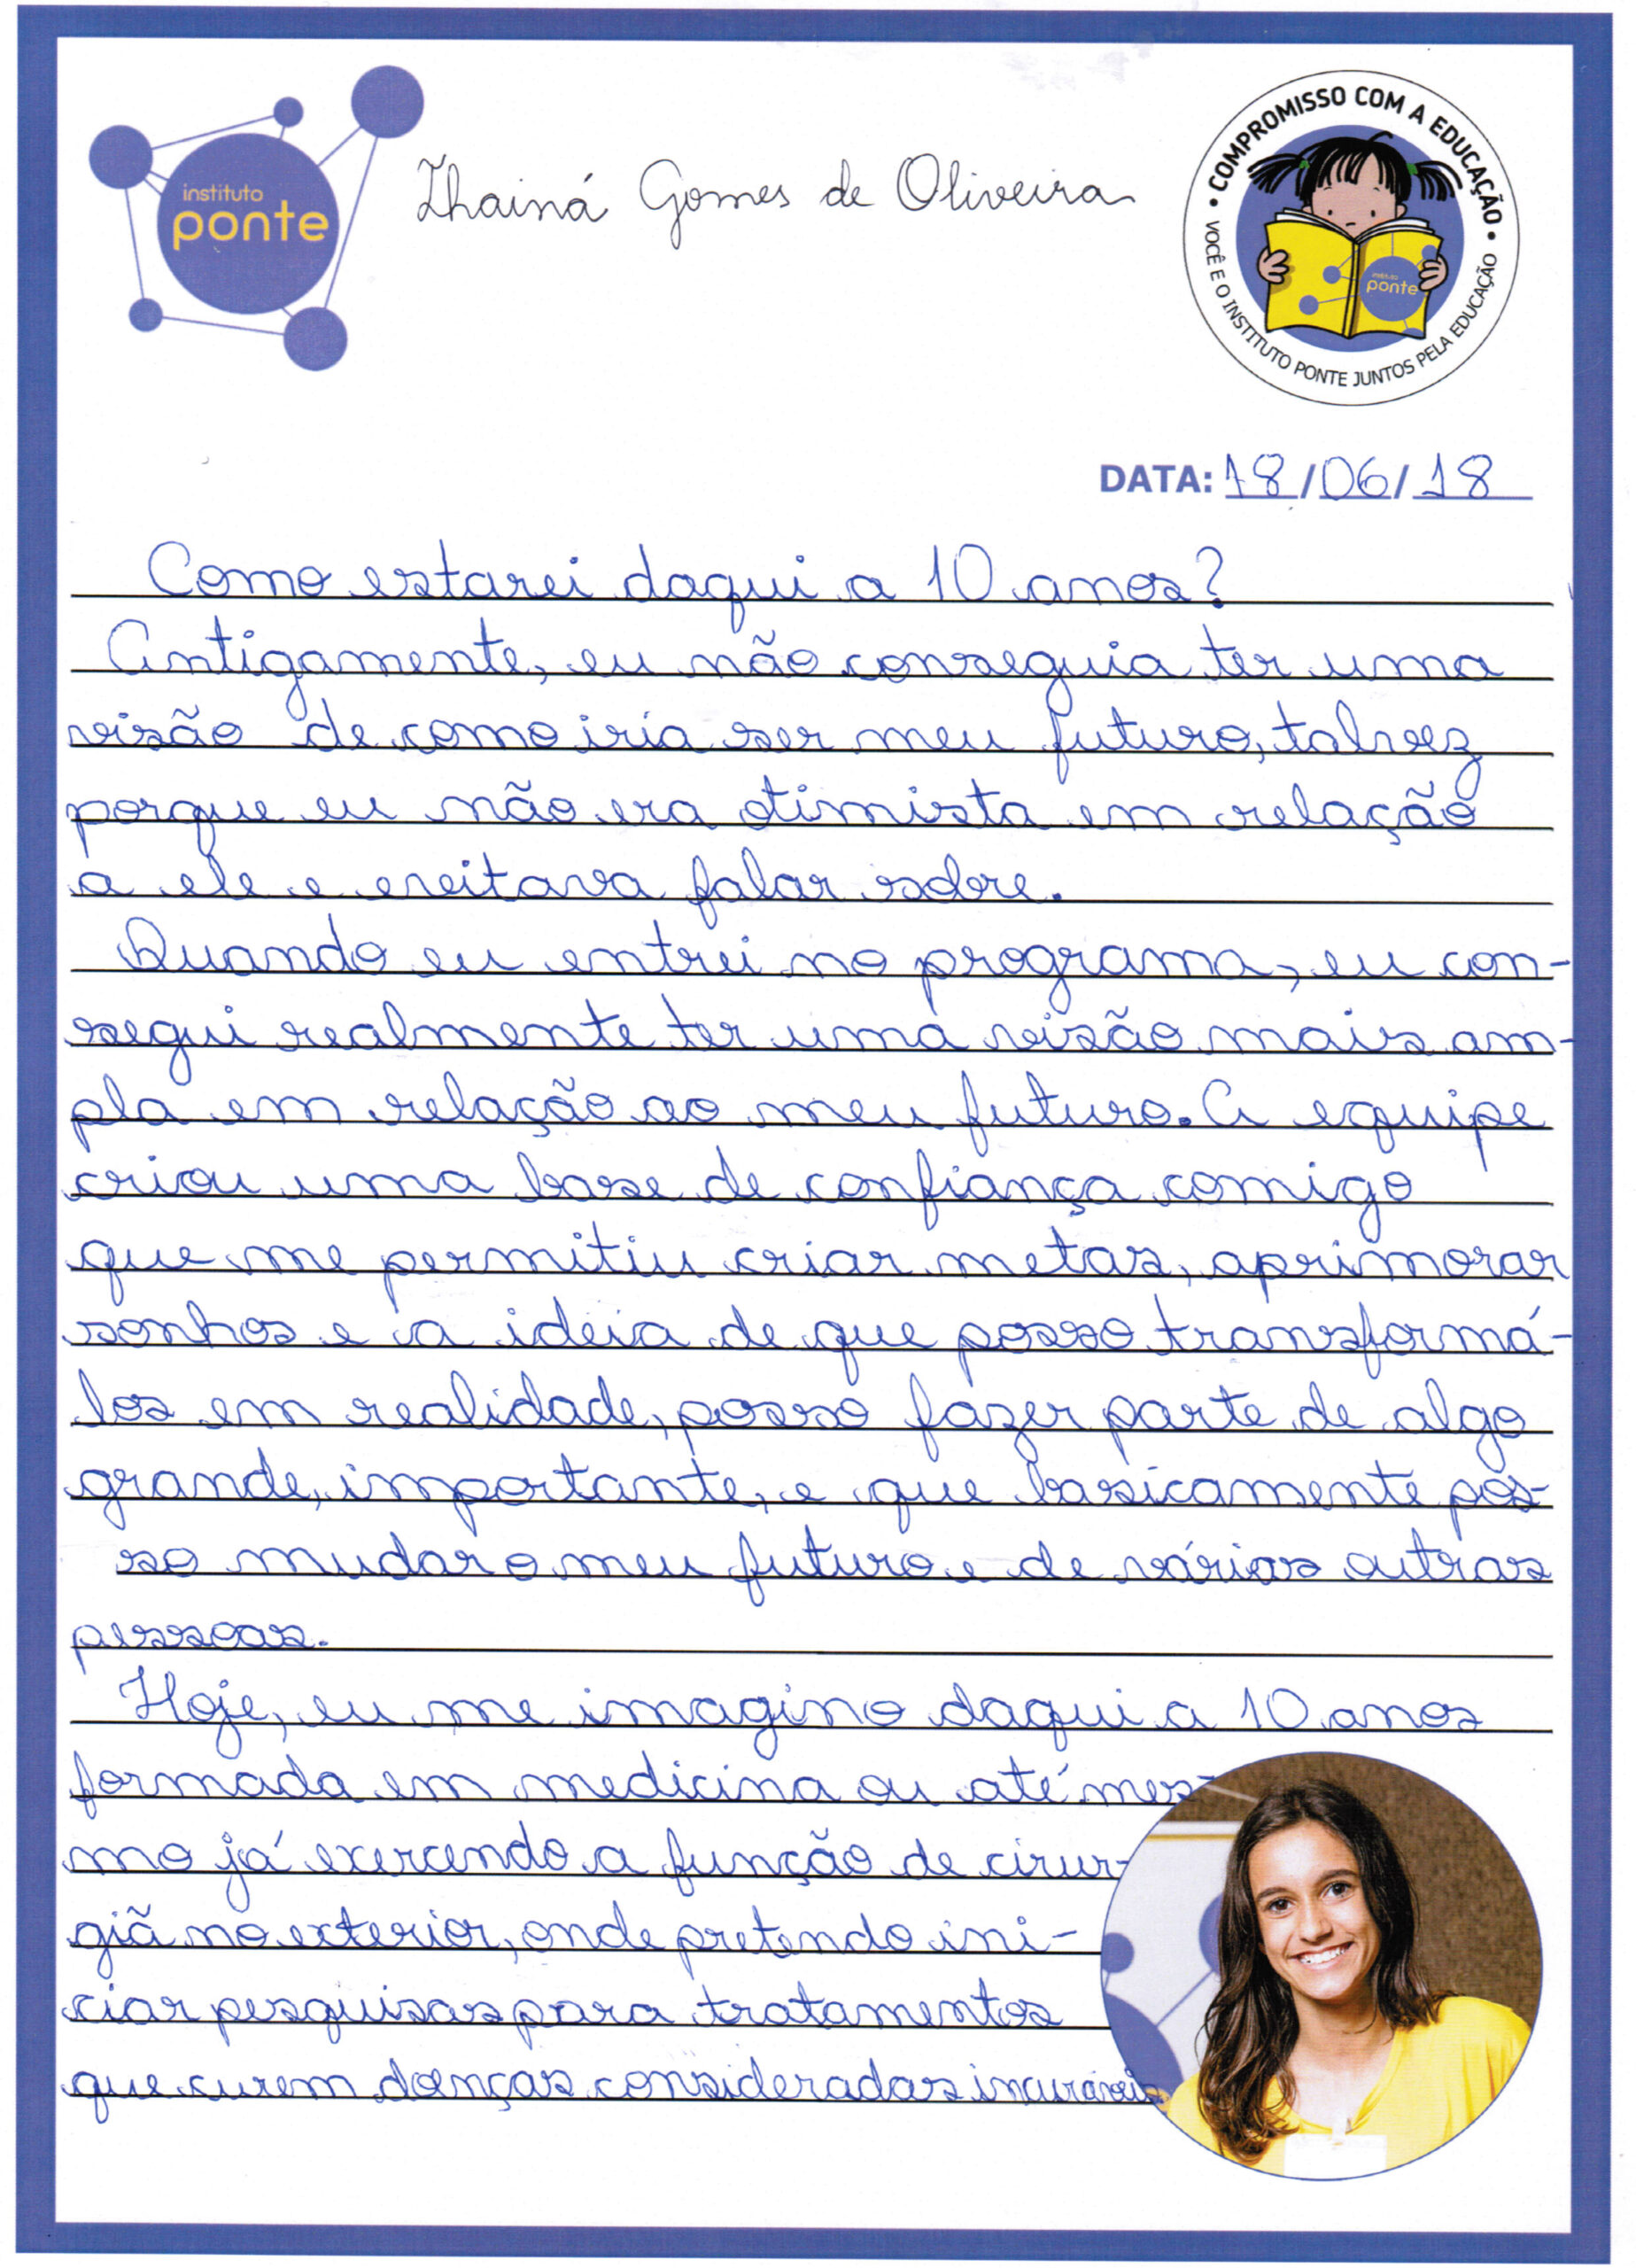 instituto
ponte
Thainá Gomes de Oliveira
• COMPROMISSO COM A EDUCAÇÃO •
VOCÊ E O INSTITUTO PONTE JUNTOS PELA EDUCAÇÃO
instituto
ponte
DATA: 18/06/18
Como estarei daqui a 10 anos?
Antigamente, eu não conseguia ter uma
visão de como iria ser meu futuro, talvez
porque eu não era otimista em relação
a ele e evitava falar sobre.
Quando eu entrei no programa, eu con-
segui realmente ter uma visão mais am-
pla em relação ao meu futuro. A equipe
criou uma base de confiança comigo
que me permitiu criar metas, aprimorar
sonhos e a ideia de que posso transformá-
los em realidade, posso fazer parte de algo
grande, importante, e que basicamente pos-
so mudar o meu futuro e de várias outras
pessoas.
Hoje, eu me imagino daqui a 10 anos
formada em medicina ou até mes-
mo já exercendo a função de cirur-
giã no exterior, onde pretendo ini-
ciar pesquisas para tratamentos
que curem doenças consideradas incuráveis.